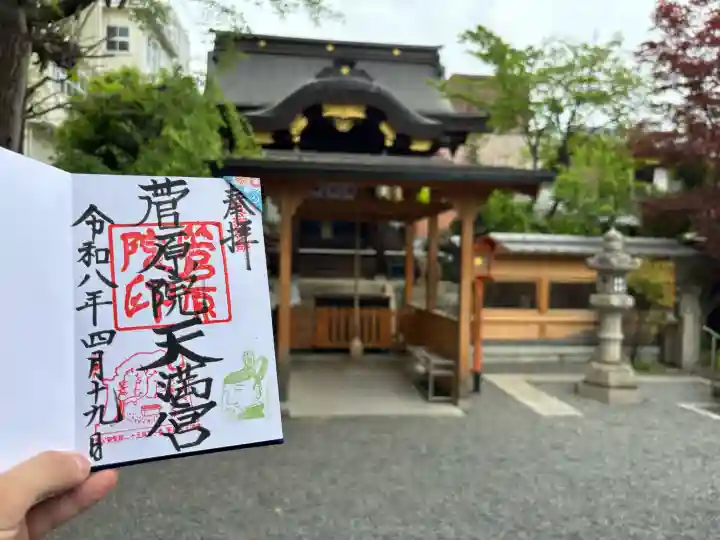 奉拝
菅原院天満宮
菅原
院印
令和八年四月十九日